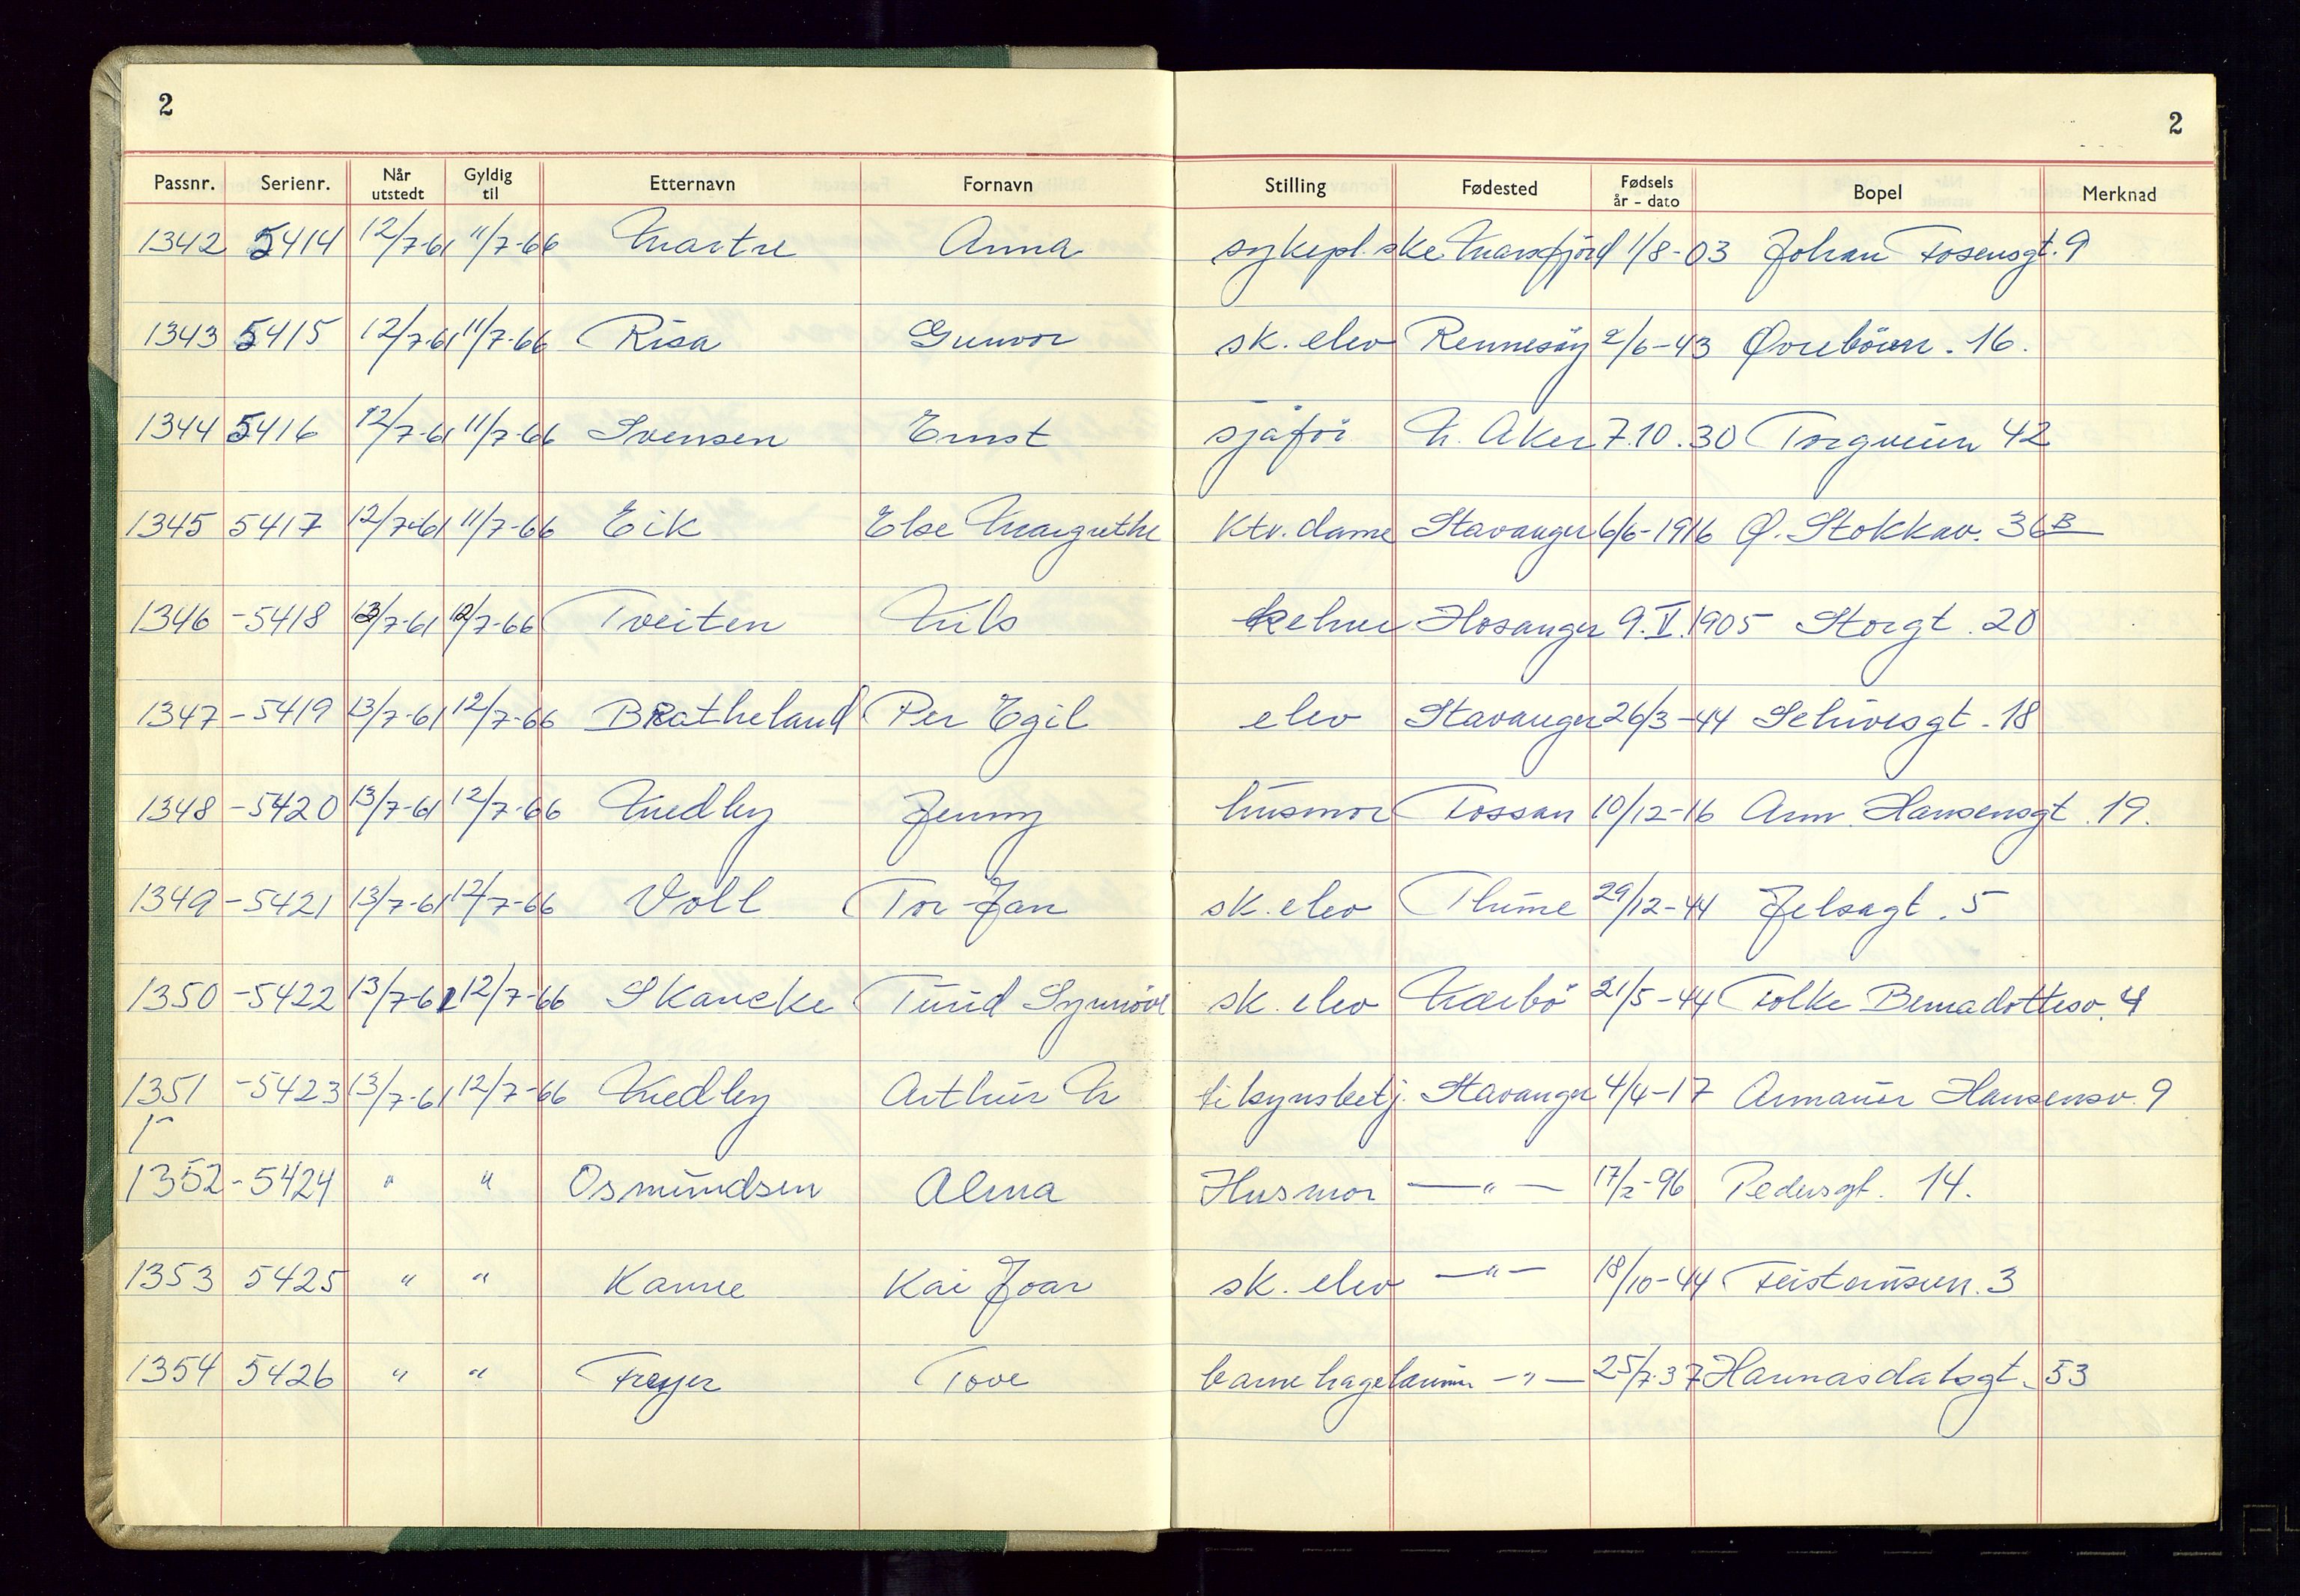 2
2
Passnr. Serienr. Når utstedt Gyldig til Etternavn Fornavn Stilling Fødested Fødsels år - dato Bopel Merknad
1342 5414 12/7-61 11/7-66 Martre Anna sykepl.ske 1/8-03 Johan Fosensgt. 9
1343 5415 12/7-61 11/7-66 Risa Gunvor sk. elev Rennesöy 2/6-43 16.
1344 5416 12/7-61 11/7-66 Svensen Ernst sjåför N. Aker 7.10.30 Torgveien 42
1345 5417 12/7-61 11/7-66 Eik Else Margrethe Ktr. dame Stavanger 6/6-1916 Ø. Stokkav. 36B
1346 -5418 13/7-61 12/7-66 Tveiten Nils kelner Hosanger 9.V.1905 Storgt. 20
1347 -5419 13/7-61 12/7-66 Bratheland Per Egil elev Stavanger 26/3-44 Schivesgt. 18
1348 -5420 13/7-61 12/7-66 Medby Jenny husmor Fossan 10/12-16 Arm. Hansensgt. 19.
1349 -5421 13/7-61 12/7-66 Voll Tor Jan sk. elev Thime 29/12-44 Jelsagt. 5
1350 -5422 13/7-61 12/7-66 Skancke Turid Synnöve sk. elev Nærbö 21/5-44 Folke Bernadottesv. 4
1351 -5423 13/7-61 12/7-66 Medby Arthur N Stavanger 4/4-17 Armauer Hansensv. 9
1352 -5424 " " Osmundsen Alma Husmor —"— 17/2-96 Pedersgt. 14.
1353 5425 " " Kanne Kai Joar sk. elev —"— 18/10-44 Feisteinsvn. 3
1354 5426 " " Freyer Tove —"— 25/7.37 Hannasdalsgt. 53